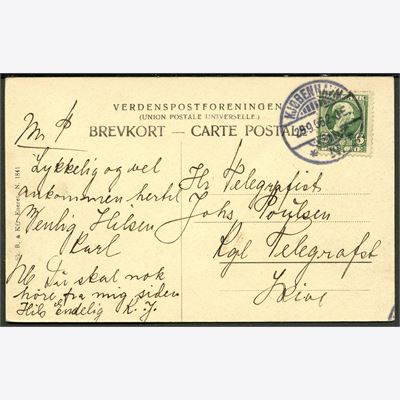 VERDENSPOSTFORENINGEN
(UNION POSTALE UNIVERSELLE.)
BREVKORT – CARTE POSTALE
KJØBENHAVN
Lykkelig og vel
ankommen hertil
Venlig Hilsen
Karl
NB Du skal nok
höre fra mig siden
Hils Endelig K. J.
Hr Telegrafist
Johs Poulsen
Kgl Telegrafst
Skive